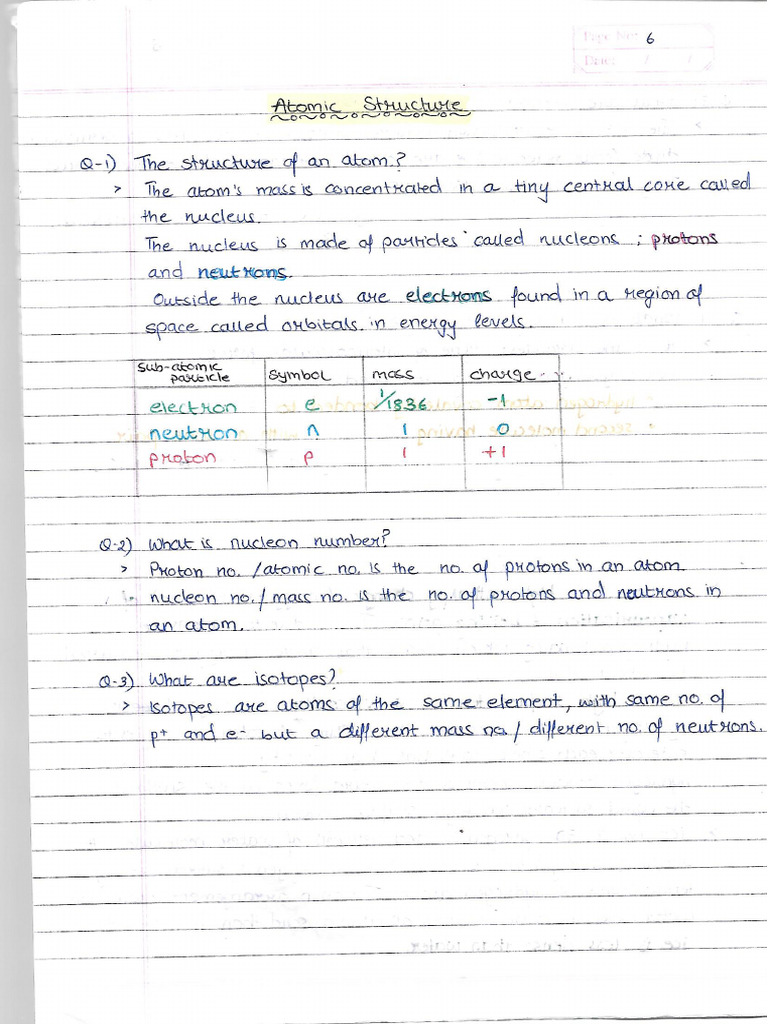 Page No: 6
Date: / /
Atomic Structure
Q-1) The structure of an atom.?
> The atom's mass is concentrated in a tiny central core called
the nucleus.
The nucleus is made of particles called nucleons ; protons
and neutrons.
Outside the nucleus are electrons found in a region of
space called orbitals in energy levels.
Sub-atomic particle symbol mass charge
electron e 1/1836 -1
neutron n 1 0
proton p 1 +1
Q-2) What is nucleon number?
> Proton no. /atomic no. is the no. of protons in an atom
nucleon no./ mass no. is the no. of protons and neutrons in
an atom.
Q-3) What are isotopes?
> Isotopes are atoms of the same element, with same no. of
p+ and e- but a different mass no./ different no. of neutrons.